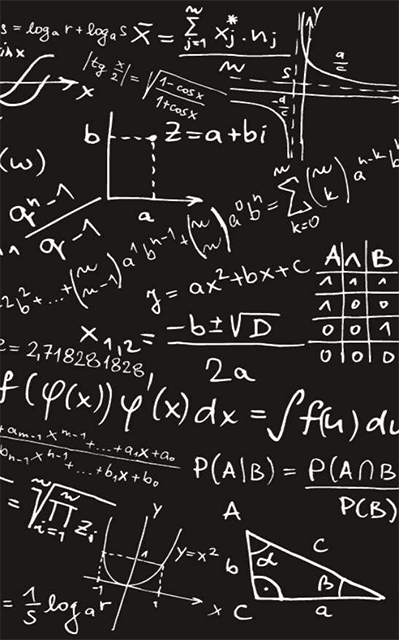 s = log_a r + log_a s
X̄ = Σ_{j=1}^{n} x_j^* · n_j / n
sin x
x
|tg x/2| = √(1-cos x / 1+cos x)
y
a/c
s
-d/c
b
z = a + bi
a
(w)
q^n - 1 / q - 1
2 b^2 + ... + (n n-1) a^1 b^{n-1} + (n n) a^0 b^n = Σ_{k=0}^{n} (n k) a^{n-k} b
y = ax² + bx + c
A ∧ B
1 1 1
1 0 0
0 0 1
0 0 0
x_{1,2} = -b ± √D / 2a
e = 2,718281828
f(φ(x)) φ'(x) dx = ∫ f(u) du
+ a_{m-1} x^{m-1} + ... + a_1 x + a_0
b_{n-1} x^{n-1} + ... + b_1 x + b_0
P(A|B) = P(A∩B / P(B)
= ⁿ√(∏_{i=1}^{n} z_i)
y
1
y = x²
-1
1
x
A
b
α
c
β
C
a
= 1/s log_a r